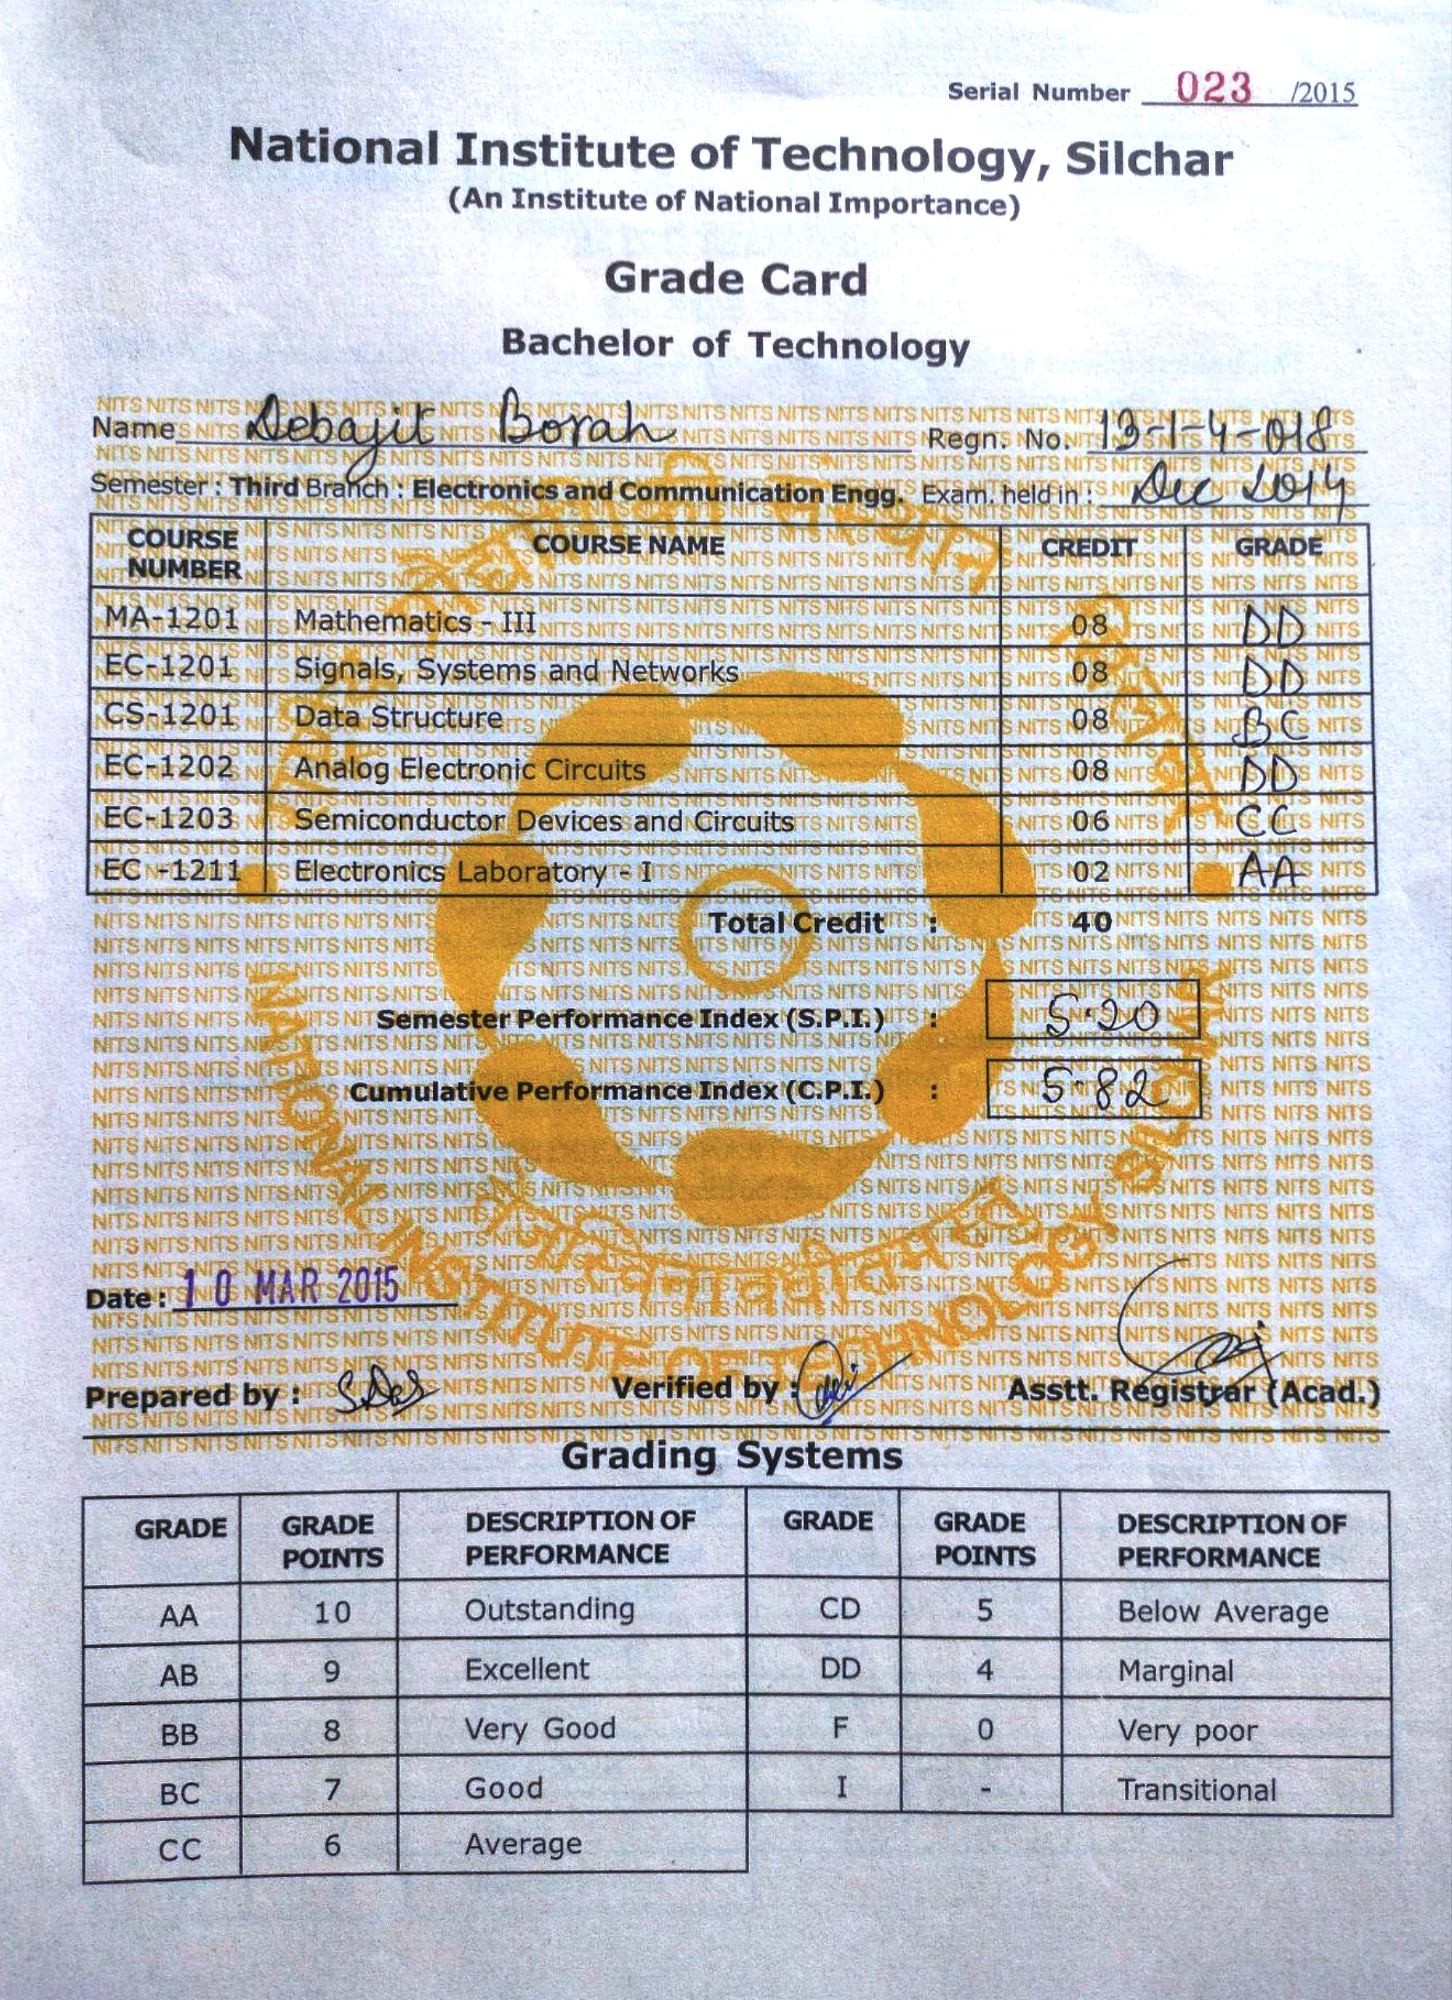 Serial Number 023 /2015
National Institute of Technology, Silchar
(An Institute of National Importance)
Grade Card
Bachelor of Technology
Name Debajit Borah Regn. No. 13-1-4-018
Semester : Third Branch : Electronics and Communication Engg. Exam. held in : Dec 2014
COURSE NUMBER COURSE NAME CREDIT GRADE
MA-1201 Mathematics - III 08 DD
EC-1201 Signals, Systems and Networks 08 DD
CS-1201 Data Structure 08 BC
EC-1202 Analog Electronic Circuits 08 DD
EC-1203 Semiconductor Devices and Circuits 06 CC
EC -1211 Electronics Laboratory - I 02 AA
Total Credit : 40
Semester Performance Index (S.P.I.) : 5.20
Cumulative Performance Index (C.P.I.) : 5.82
NATIONAL INSTITUTE OF TECHNOLOGY SILCHAR
Date : 10 MAR 2015
Prepared by : S.Das Verified by : Asstt. Registrar (Acad.)
Grading Systems
GRADE GRADE POINTS DESCRIPTION OF PERFORMANCE GRADE GRADE POINTS DESCRIPTION OF PERFORMANCE
AA 10 Outstanding CD 5 Below Average
AB 9 Excellent DD 4 Marginal
BB 8 Very Good F 0 Very poor
BC 7 Good I - Transitional
CC 6 Average